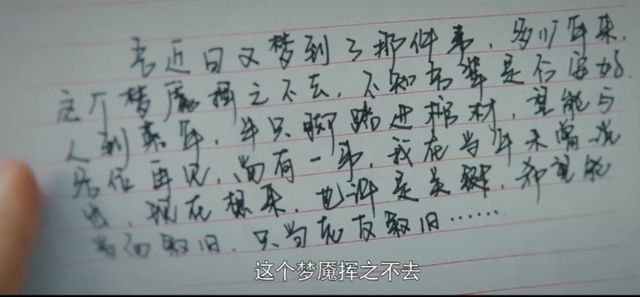 近日又梦到了那件事，年来，
这个梦魇挥之不去，不知是否安好，
人到暮年，半只脚踏进棺材，望能与
各位再见，尚有一事，我在当年未曾说
出，现在想来，也许是关键，希望能
当面叙旧，只当老友叙旧……
这个梦魇挥之不去